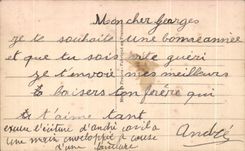 Mon cher Georges
Je te souhaite une bonne année
et que tu sois vite guéri
je t'envoie mes meilleurs
baisers ton frère qui
t'aime tant
André
excuse l'écriture d'andré car il a
une main enveloppée a cause
d'une